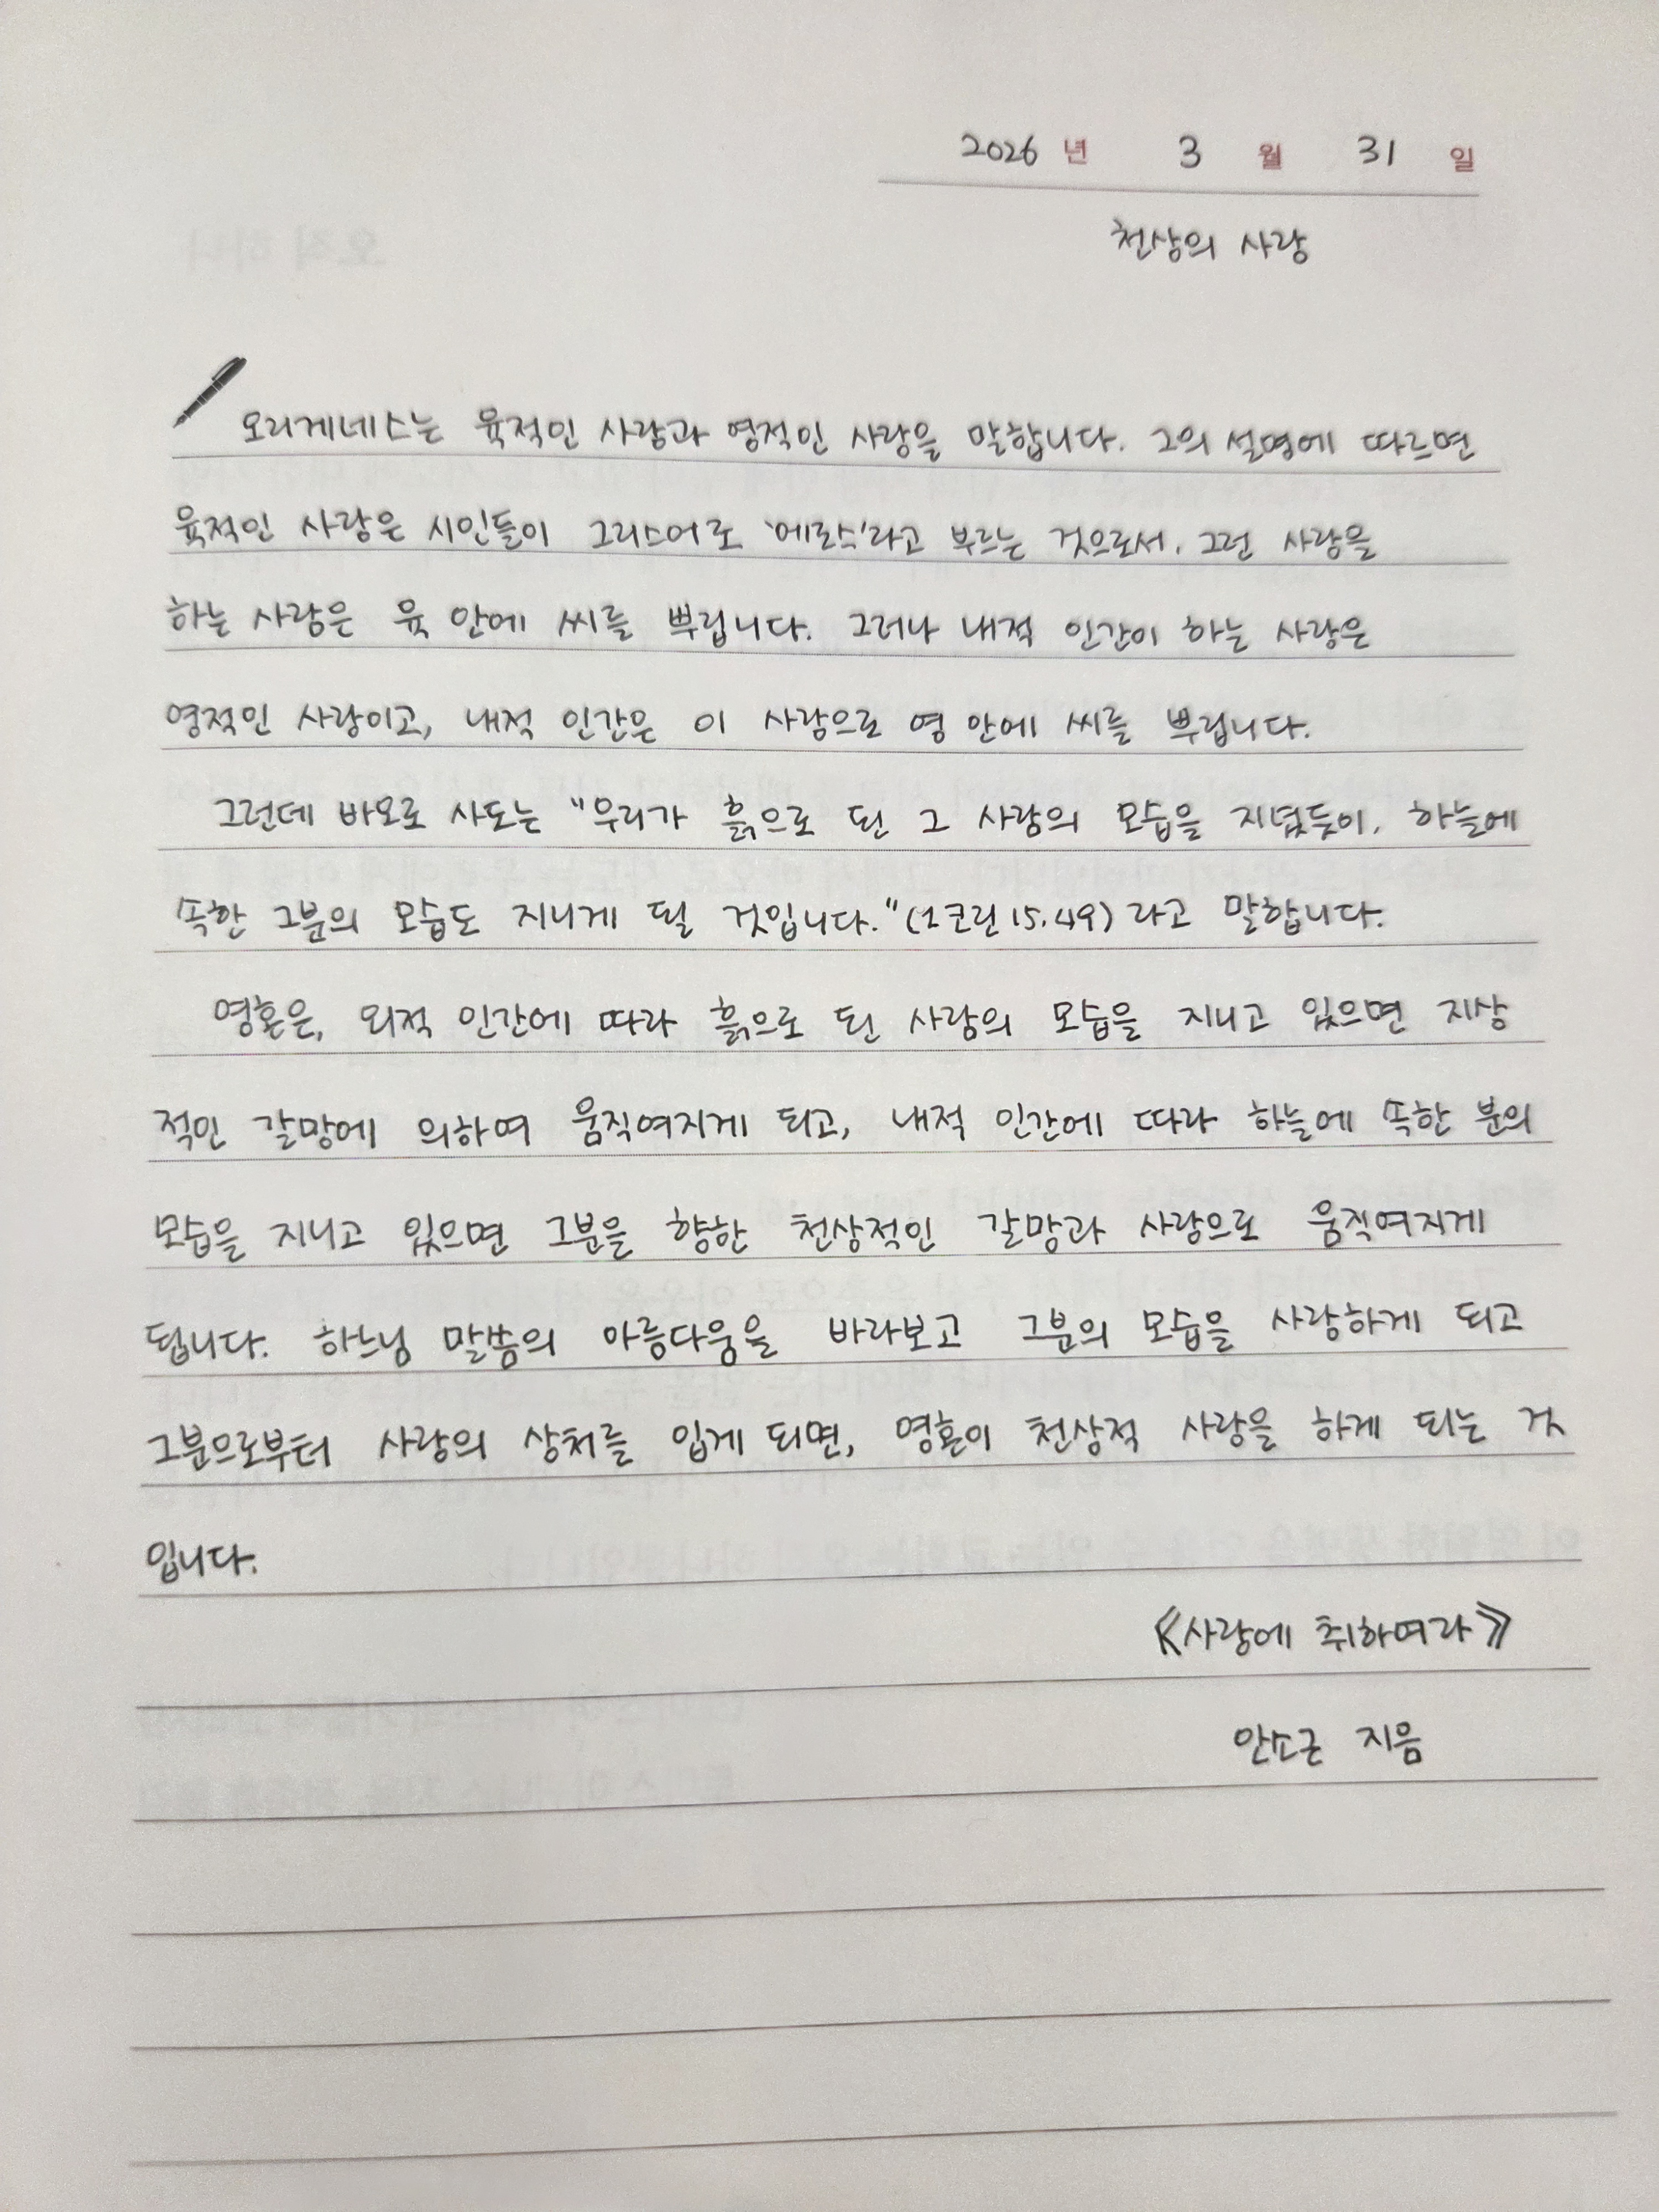 2026 년 3 월 31 일
천상의 사랑
오리게네스는 육적인 사랑과 영적인 사랑을 말합니다. 그의 설명에 따르면
육적인 사랑은 시인들이 그리스어로 '에로스'라고 부르는 것으로서, 그런 사랑을
하는 사람은 육 안에 씨를 뿌립니다. 그러나 내적 인간이 하는 사랑은
영적인 사랑이고, 내적 인간은 이 사랑으로 영 안에 씨를 뿌립니다.
그런데 바오로 사도는 "우리가 흙으로 된 그 사람의 모습을 지녔듯이, 하늘에
속한 그분의 모습도 지니게 될 것입니다."(1코린 15,49) 라고 말합니다.
영혼은, 외적 인간에 따라 흙으로 된 사람의 모습을 지니고 있으면 지상
적인 갈망에 의하여 움직여지게 되고, 내적 인간에 따라 하늘에 속한 분의
모습을 지니고 있으면 그분을 향한 천상적인 갈망과 사랑으로 움직여지게
됩니다. 하느님 말씀의 아름다움을 바라보고 그분의 모습을 사랑하게 되고
그분으로부터 사랑의 상처를 입게 되면, 영혼이 천상적 사랑을 하게 되는 것
입니다.
《사랑에 취하여라》
안소근 지음